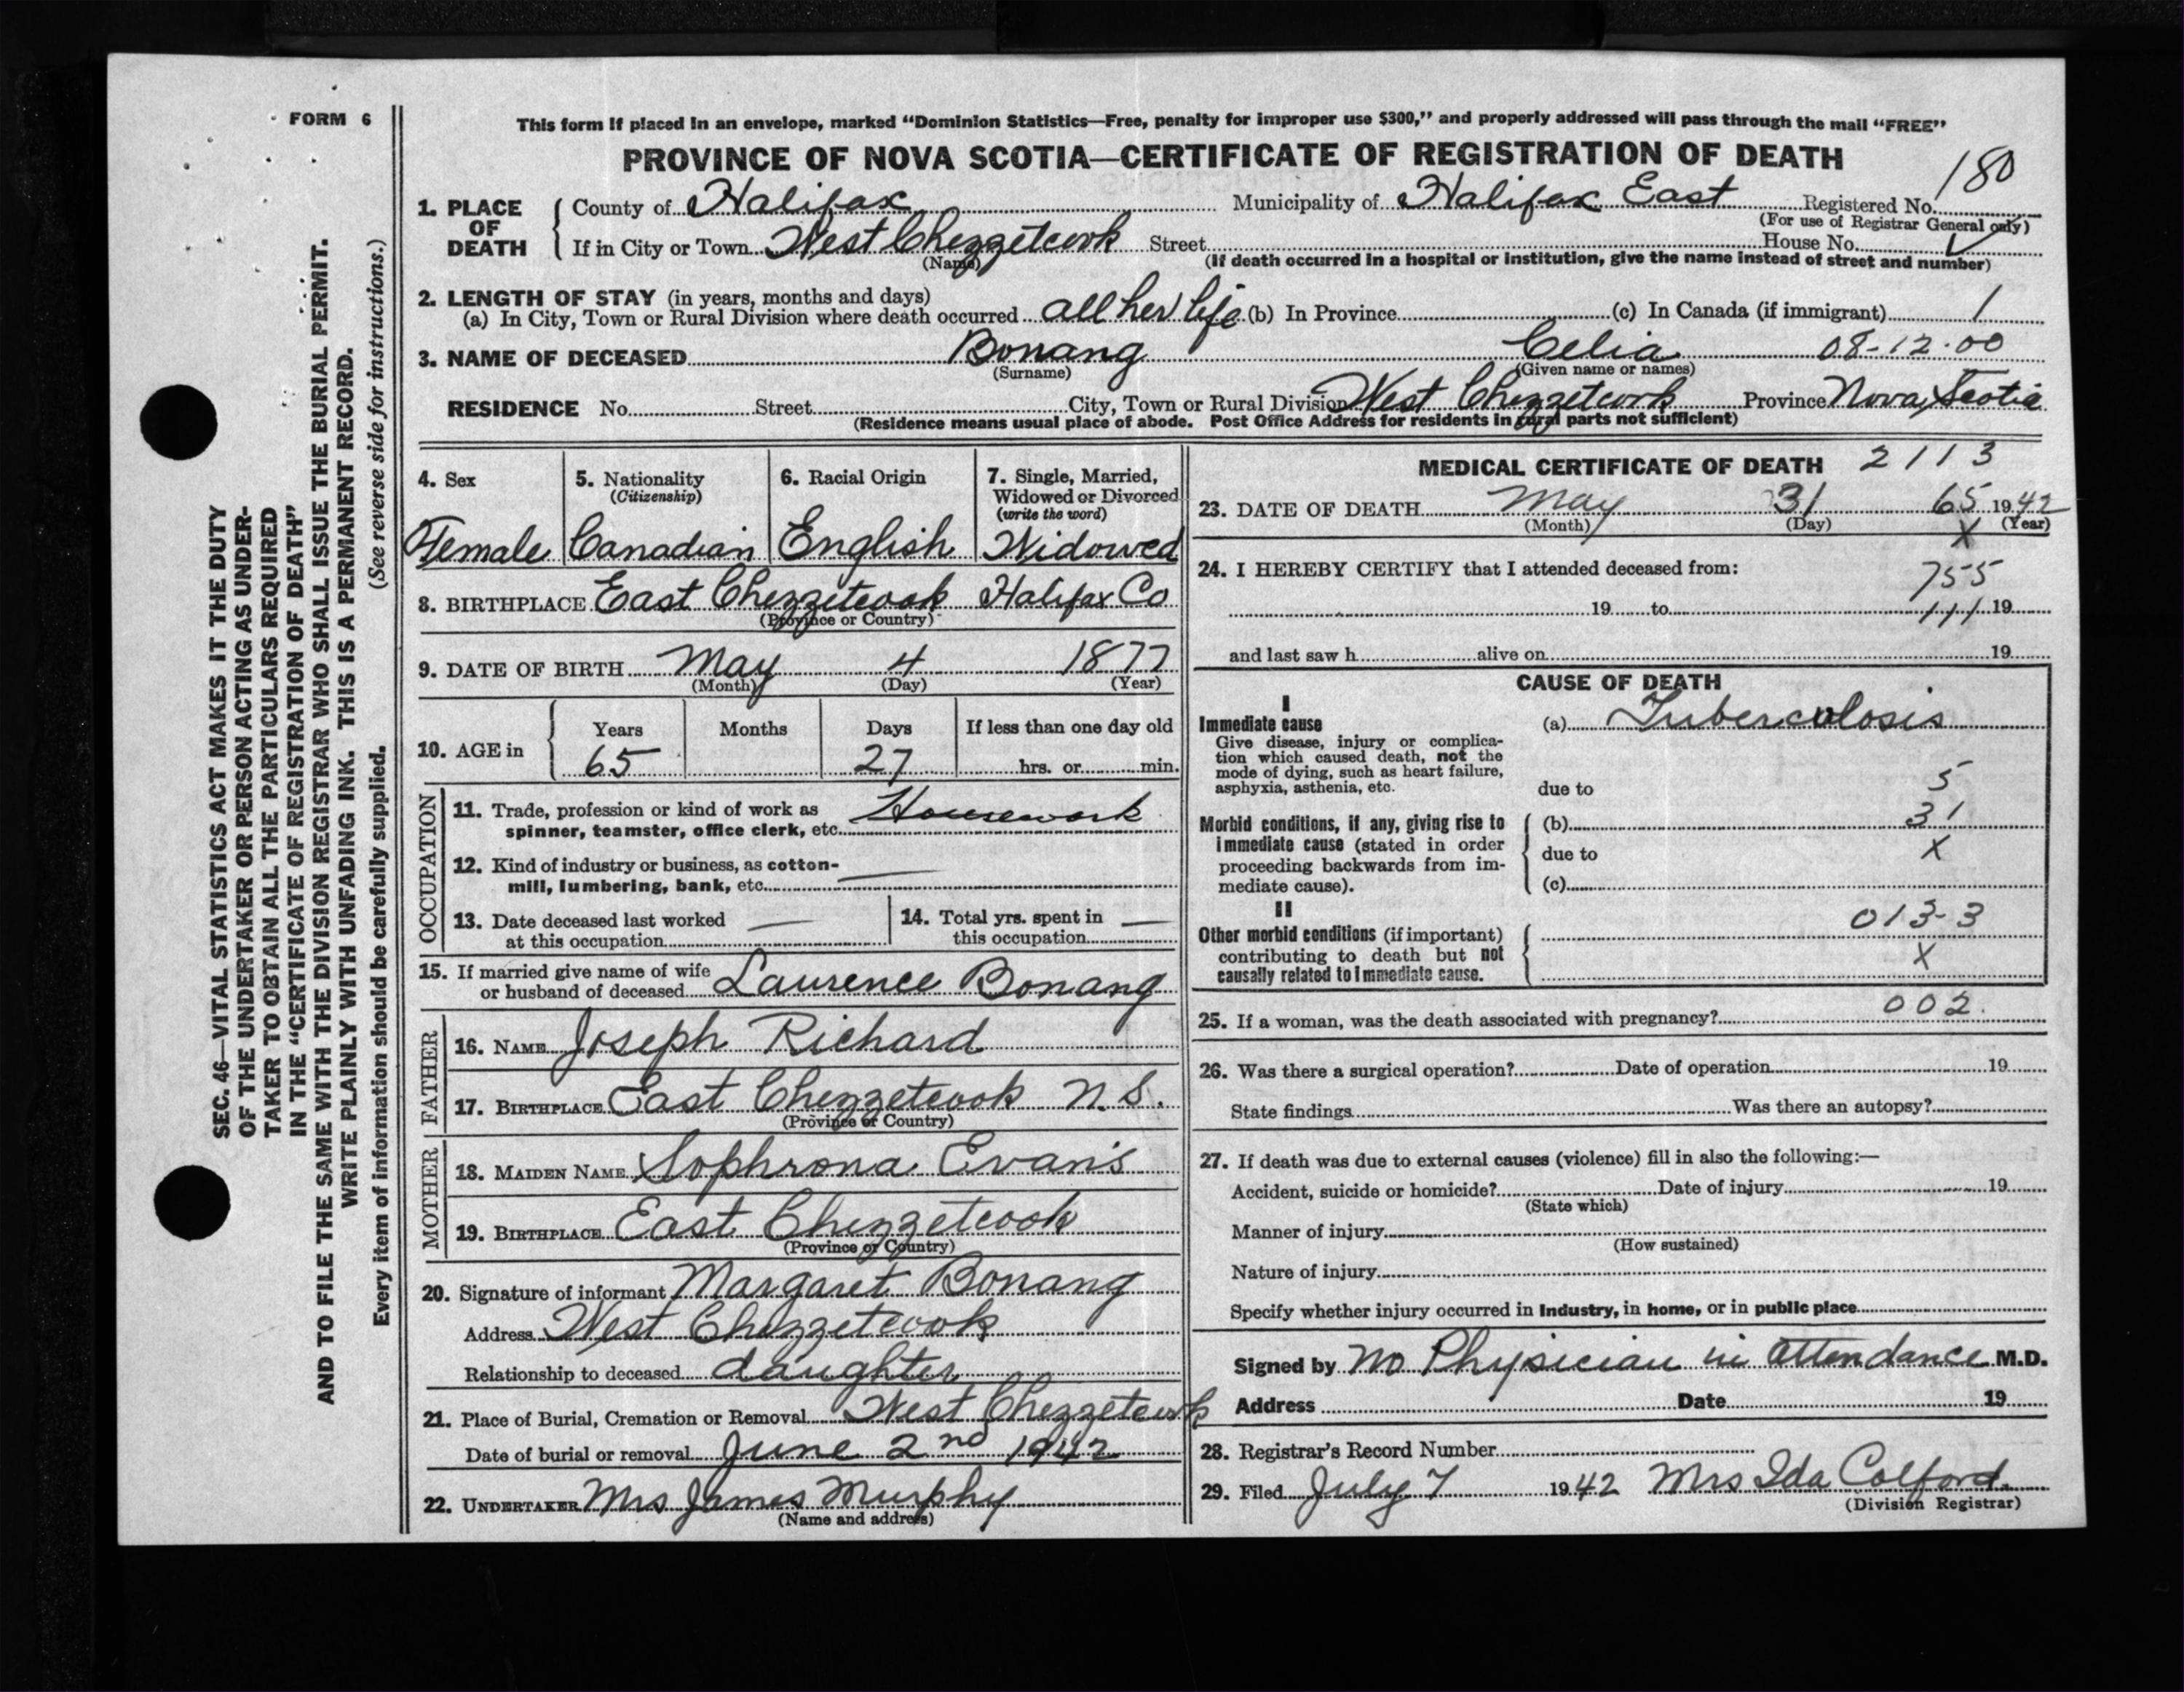 FORM 6
SEC. 46—VITAL STATISTICS ACT MAKES IT THE DUTY
OF THE UNDERTAKER OR PERSON ACTING AS UNDER-
TAKER TO OBTAIN ALL THE PARTICULARS REQUIRED
IN THE "CERTIFICATE OF REGISTRATION OF DEATH"
AND TO FILE THE SAME WITH THE DIVISION REGISTRAR WHO SHALL ISSUE THE BURIAL PERMIT.
WRITE PLAINLY WITH UNFADING INK. THIS IS A PERMANENT RECORD.
Every item of information should be carefully supplied. (See reverse side for instructions.)
This form if placed in an envelope, marked "Dominion Statistics—Free, penalty for improper use $300," and properly addressed will pass through the mail "FREE"
PROVINCE OF NOVA SCOTIA—CERTIFICATE OF REGISTRATION OF DEATH
180
1. PLACE OF DEATH County of Halifax Municipality of Halifax East Registered No.
(For use of Registrar General only)
If in City or Town West Chezzetcook Street House No.
(Name) (If death occurred in a hospital or institution, give the name instead of street and number)
2. LENGTH OF STAY (in years, months and days)
(a) In City, Town or Rural Division where death occurred all her life (b) In Province (c) In Canada (if immigrant) 1
3. NAME OF DECEASED Bonang Celia 08-12-00
(Surname) (Given name or names)
RESIDENCE No. Street City, Town or Rural Division West Chezzetcook Province Nova Scotia
(Residence means usual place of abode. Post Office Address for residents in rural parts not sufficient)
4. Sex 5. Nationality (Citizenship) 6. Racial Origin 7. Single, Married, Widowed or Divorced (write the word)
Female Canadian English Widowed
8. BIRTHPLACE East Chezzetcook Halifax Co
(Province or Country)
9. DATE OF BIRTH May 4 1877
(Month) (Day) (Year)
10. AGE in Years Months Days If less than one day old
65 27 hrs. or min.
OCCUPATION
11. Trade, profession or kind of work as Housework
spinner, teamster, office clerk, etc.
12. Kind of industry or business, as cotton-
mill, lumbering, bank, etc. —
13. Date deceased last worked —
at this occupation
14. Total yrs. spent in —
this occupation
15. If married give name of wife
or husband of deceased Laurence Bonang
FATHER
16. NAME Joseph Richard
17. BIRTHPLACE East Chezzetcook N.S.
(Province or Country)
MOTHER
18. MAIDEN NAME Sophrona Evans
19. BIRTHPLACE East Chezzetcook
(Province or Country)
20. Signature of informant Margaret Bonang
Address West Chezzetcook
Relationship to deceased daughter
21. Place of Burial, Cremation or Removal West Chezzetcook
Date of burial or removal June 2nd 1942
22. UNDERTAKER Mrs James Murphy
(Name and address)
MEDICAL CERTIFICATE OF DEATH 2113
23. DATE OF DEATH May 31 65 1942
(Month) (Day) X (Year)
24. I HEREBY CERTIFY that I attended deceased from: 755
19 to 111 19
and last saw h alive on 19
CAUSE OF DEATH
I
Immediate cause (a) Tuberculosis
Give disease, injury or complica-
tion which caused death, not the
mode of dying, such as heart failure,
asphyxia, asthenia, etc. due to 5
Morbid conditions, if any, giving rise to (b) 31
immediate cause (stated in order due to X
proceeding backwards from im-
mediate cause). (c)
II
Other morbid conditions (if important) 013-3
contributing to death but not X
causally related to immediate cause.
25. If a woman, was the death associated with pregnancy? 002
26. Was there a surgical operation? Date of operation 19
State findings Was there an autopsy?
27. If death was due to external causes (violence) fill in also the following:—
Accident, suicide or homicide? Date of injury 19
(State which)
Manner of injury
(How sustained)
Nature of injury
Specify whether injury occurred in industry, in home, or in public place
Signed by No Physician in attendance M.D.
Address Date 19
28. Registrar's Record Number
29. Filed July 7 1942 Mrs Ida Colford
(Division Registrar)